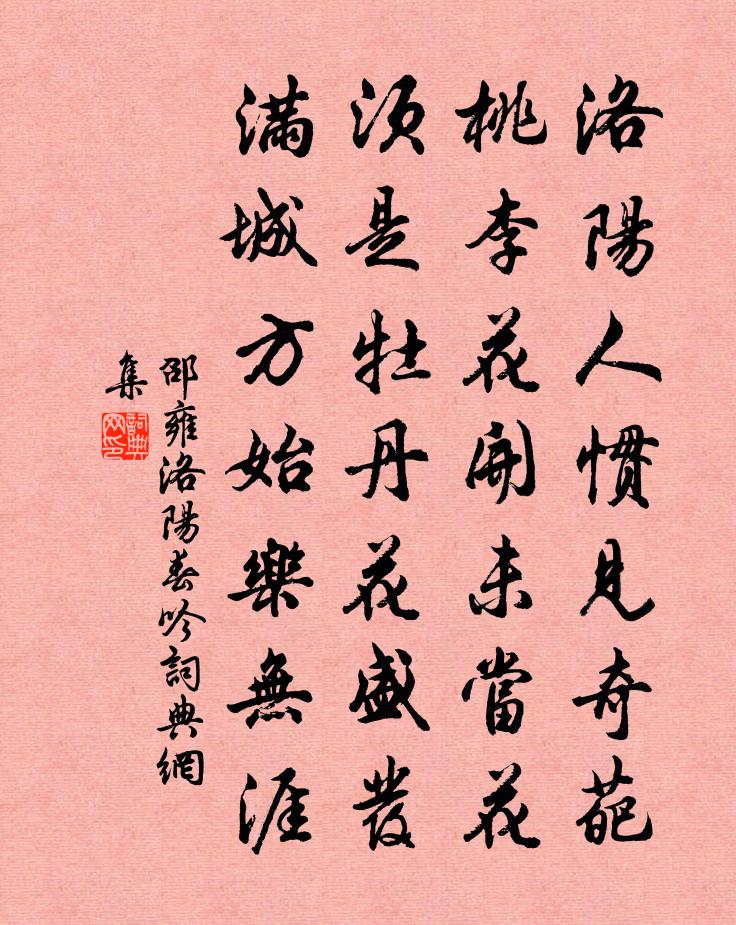 洛陽人慣見奇葩
桃李花開未當花
須是牡丹花盛發
滿城方始樂無涯
邵雍洛陽春吟詞典網
集
詞典網印